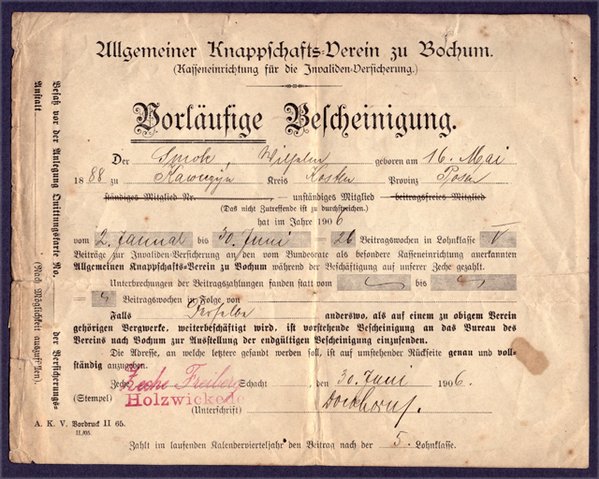 Allgemeiner Knappschafts-Verein zu Bochum.
(Kasseneinrichtung für die Invaliden-Versicherung.)
Vorläufige Bescheinigung.
Der Smok, Wilhelm geboren am 16. Mai
1888 zu Kreis Kosten Provinz Posen
ständiges Mitglied Nr. — unständiges Mitglied — beitragsfreies Mitglied
(Das nicht Zutreffende ist zu durchstreichen.)
hat im Jahre 1906
vom 2. Januar bis 30. Juni — 26 Beitragswochen in Lohnklasse V
Beiträge zur Invaliden-Versicherung an den vom Bundesrate als besondere Kasseneinrichtung anerkannten
Allgemeinen Knappschafts-Verein zu Bochum während der Beschäftigung auf unserer Zeche gezahlt.
Unterbrechungen der Beitragszahlungen fanden statt vom bis
Beitragswochen Folge von
Falls anderswo, als auf einem zu obigem Verein
gehörigen Bergwerke, weiterbeschäftigt wird, ist vorstehende Bescheinigung an das Bureau des
Vereins nach Bochum zur Ausstellung der endgültigen Bescheinigung einzusenden.
Die Adresse, an welche letztere gesandt werden soll, ist auf umstehender Rückseite genau und voll-
ständig anzugeben.
Zeche Zeche Freiberg Schacht , den 30. Juni 1906.
(Stempel) Holzwickede
(Unterschrift)
A. K. V. Vordruck II 65.
II./05.
Zahlt im laufenden Kalendervierteljahr den Beitrag nach der 5. Lohnklasse.
Besaß vor der Anlegung Quittungskarte No. der Versicherungs-
Anstalt (Nach Möglichkeit auszufüllen.)